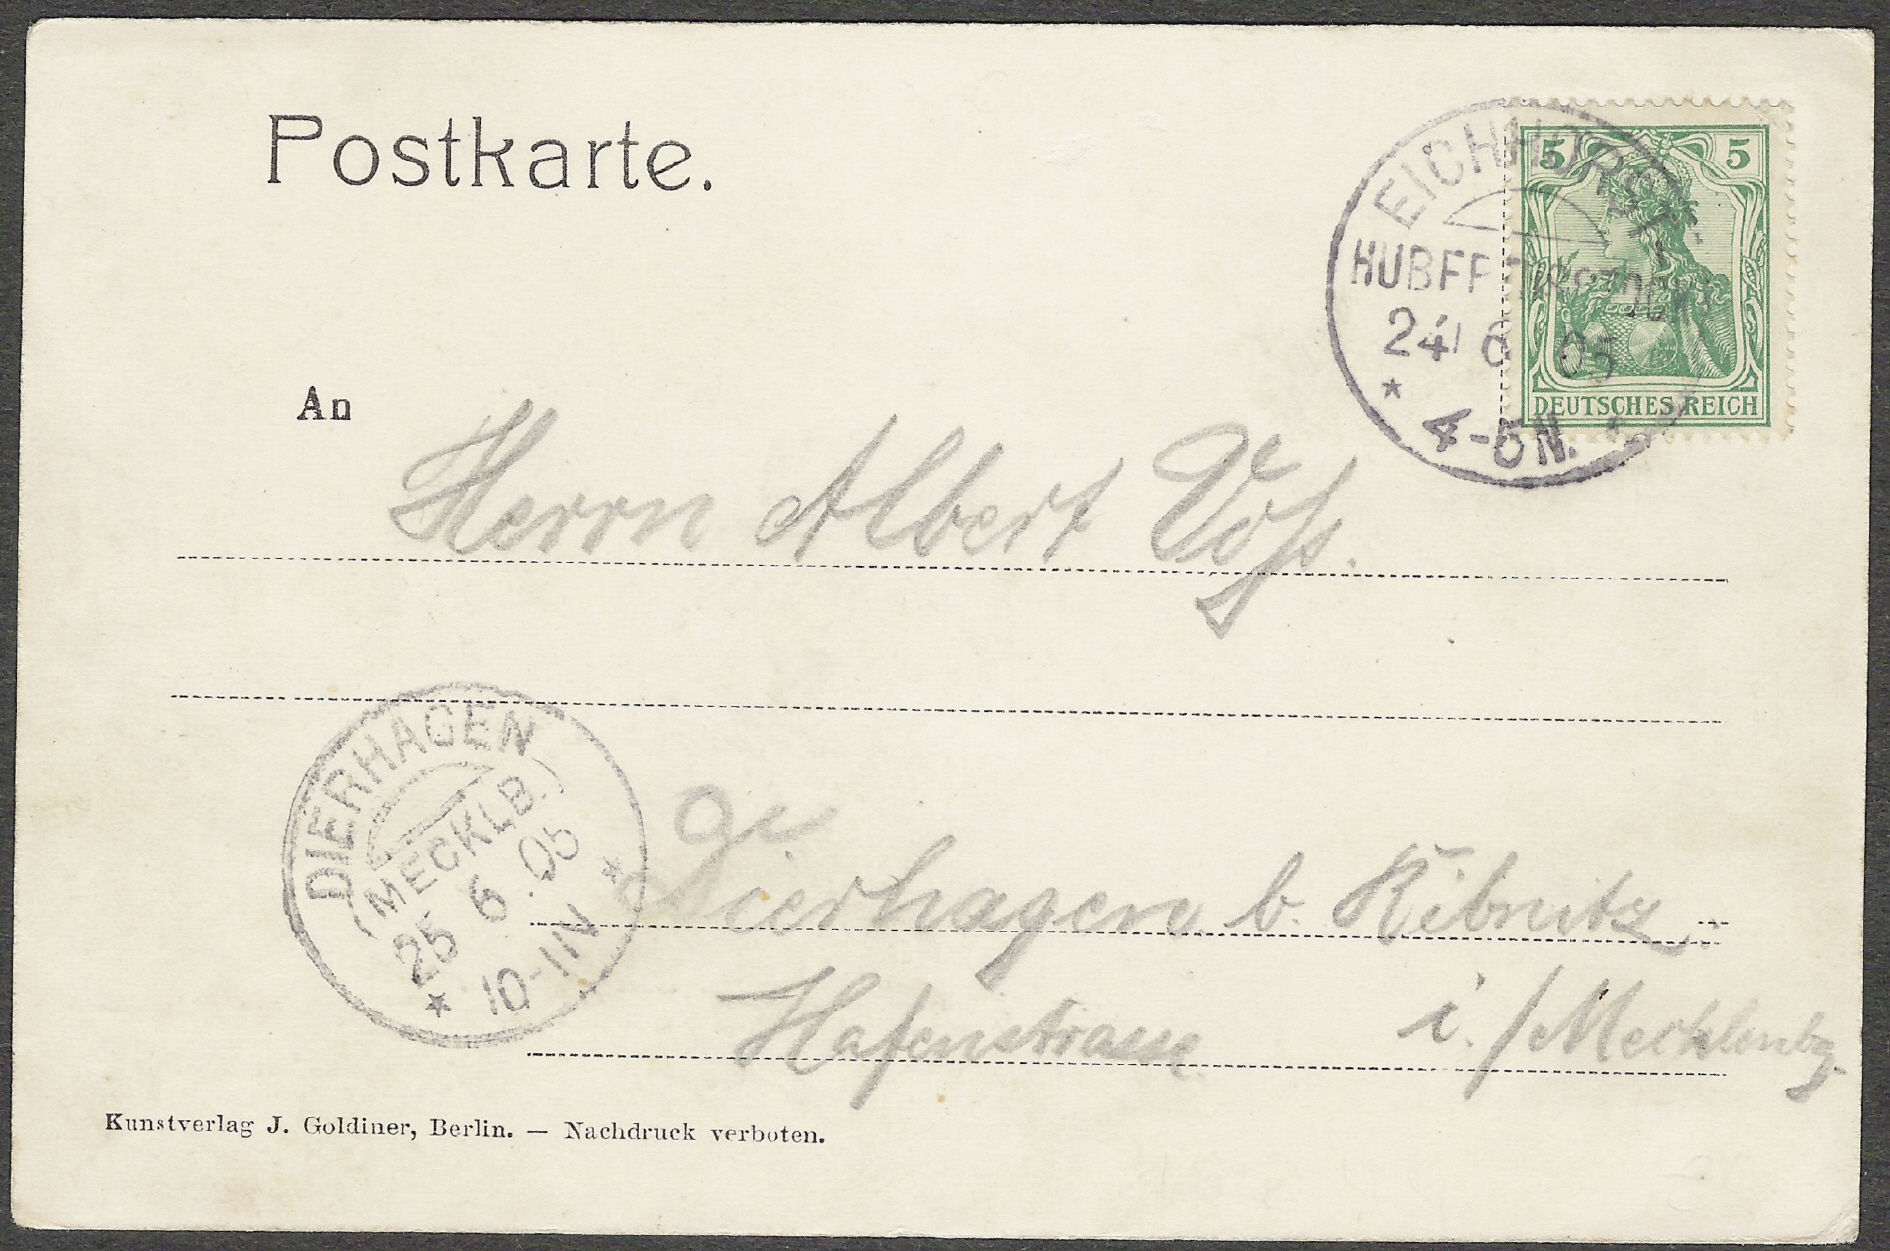 Postkarte.
5 5
DEUTSCHES REICH
EICHHORST
HUBERTUSSTOCK
24 6 05
* 4-5 N.
An
Herrn Albert Voss.
DIERHAGEN
(MECKLB.)
25 6.05
* 10-11 V *
Dierhagen b. Ribnitz
Hafenstrasse i./Mecklenbg.
Kunstverlag J. Goldiner, Berlin. — Nachdruck verboten.